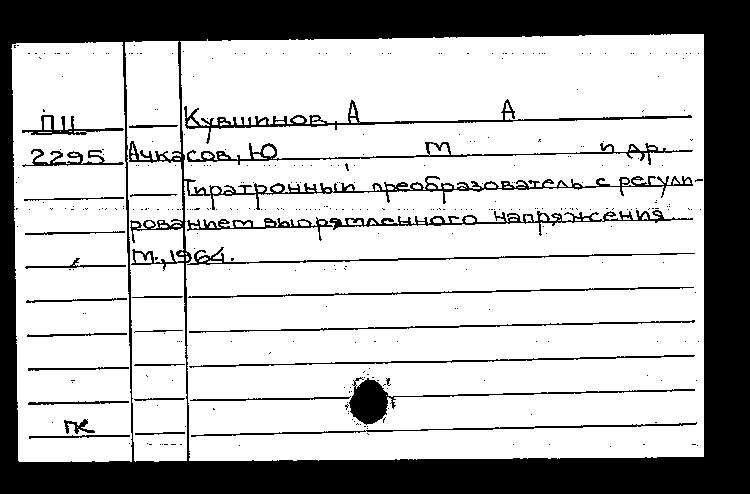 ПЦ Кувшинов, А А
2295 Ачкасов, Ю М и др.
Тиратронный преобразователь с регули-
рованием выпрямленного напряжения
М., 1964.
ПК